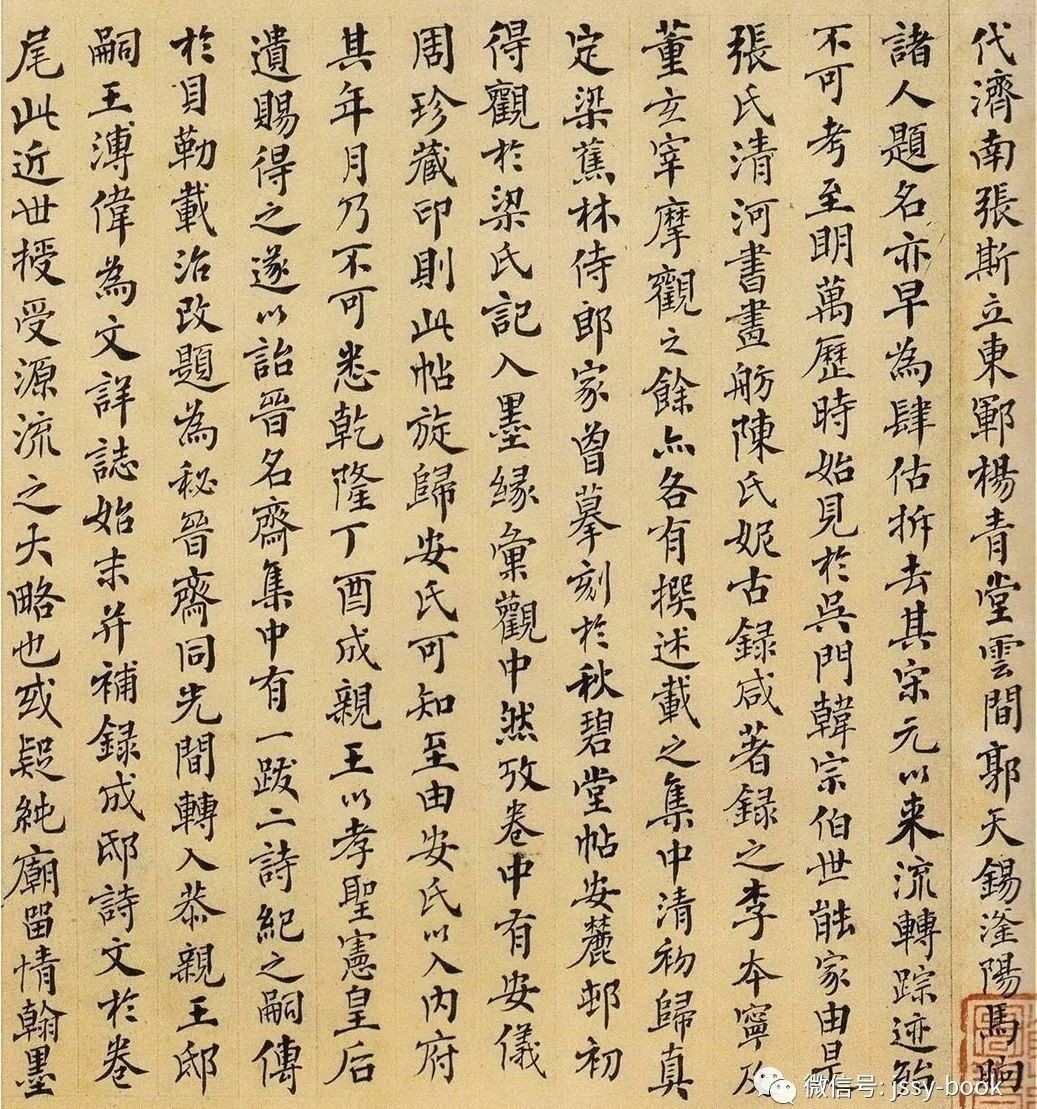 代濟南張斯立東鄆楊青堂雲間郭天錫滏陽馬昫
諸人題名亦早為肆估拆去其宋元以来流轉踪迹殆
不可考至明萬歷時始見於吳門韓宗伯世能家由是
張氏清河書畫舫陳氏妮古録咸著録之李本寧及
董玄宰摩觀之餘亦各有撰述載之集中清初歸真
定梁蕉林侍郎家曾摹刻於秋碧堂帖安麓邨初
得觀於梁氏記入墨緣彙觀中然攷卷中有安儀
周珍藏印則此帖旋歸安氏可知至由安氏以入內府
其年月乃不可悉乾隆丁酉成親王以孝聖憲皇后
遺賜得之遂以詒晉名齋集中有一跋二詩紀之嗣傳
於貝勒載治改題為秘晉齋同光間轉入恭親王邸
嗣王溥偉為文詳誌始末并補録成邸詩文於卷
尾此近世授受源流之大略也或疑純廟留情翰墨
微信号: jssy-book